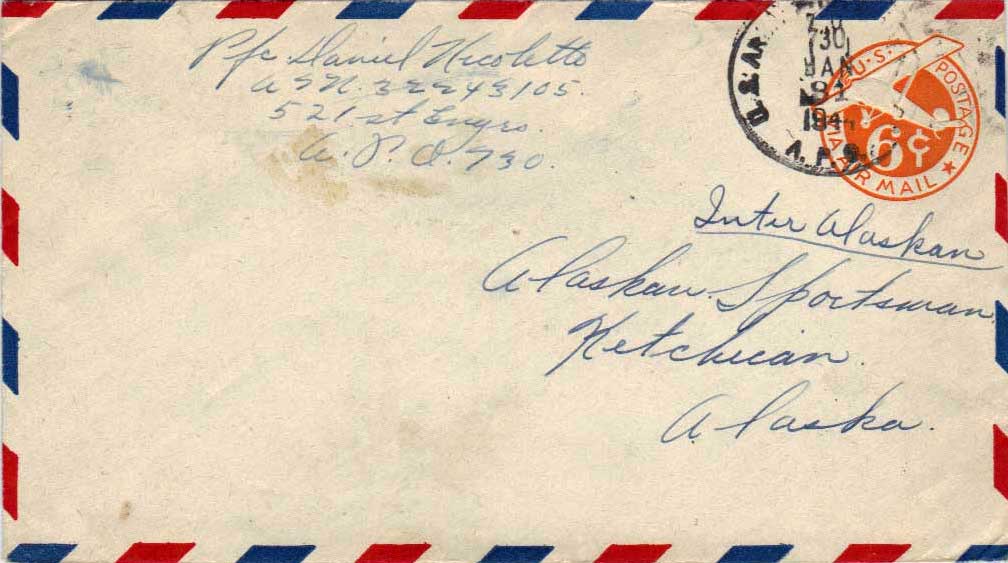 Pfc. Daniel Nicoletto
ASN. 32243105.
521st Engrs.
A. P. O. 730.
U.S. AR
730
JAN
31
194
A. P. O.
U.S. POSTAGE
6¢
VIA AIR MAIL
Inter Alaskan
Alaskan Sportsman
Ketchican
Alaska.